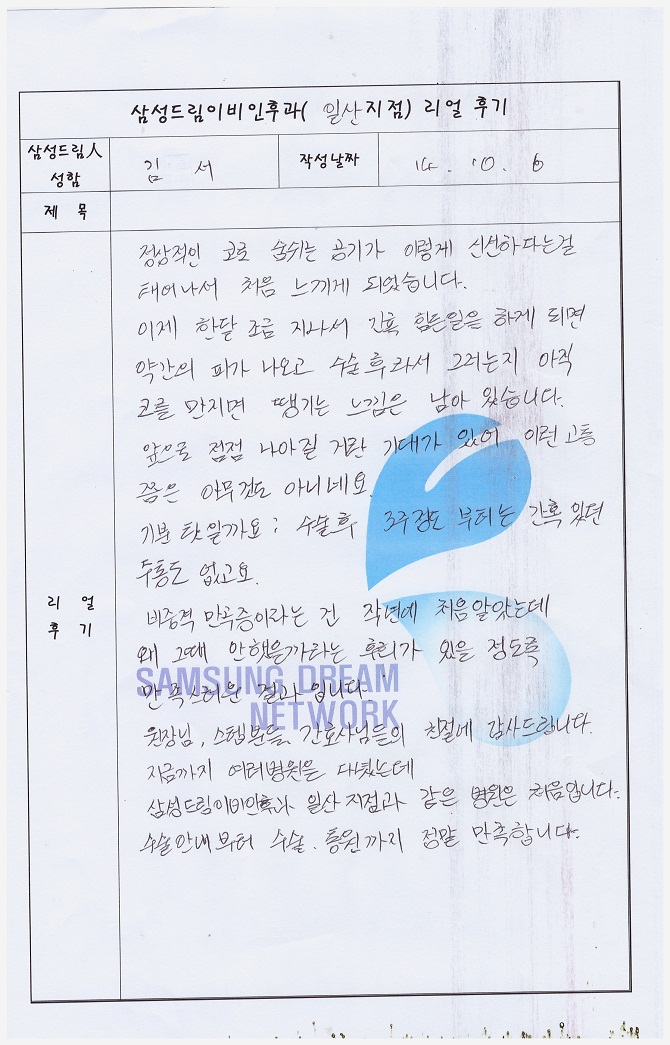 삼성드림이비인후과( 일산지점) 리얼 후기
삼성드림人 성함
김 서
작성날짜
14. 10. 6
제 목
리 얼 후 기
정상적인 코로 숨쉬는 공기가 이렇게 신선하다는걸
태어나서 처음 느끼게 되었습니다.
이제 한달 조금 지나서 간혹 힘든일을 하게 되면
약간의 피가 나오고 수술후라서 그러는지 아직
코를 만지면 땡기는 느낌은 남아 있습니다.
앞으로 점점 나아질 거란 기대가 있어 이런 고통
쯤은 아무것도 아니네요.
기분 탓일까요; 수술후 3주정도 부터는 간혹 있던
두통도 없고요.
비중격 만곡증이라는 건 작년에 처음알았는데
왜 그때 안했을까라는 후회가 있을 정도로
만족스러운 결과입니다
원장님, 스텝분들, 간호사님들의 친절에 감사드립니다.
지금까지 여러병원을 다녔는데
삼성드림이비인후과 일산지점과 같은 병원은 처음입니다.
수술안내부터 수술. 통원까지 정말 만족합니다.
SAMSUNG DREAM
NETWORK